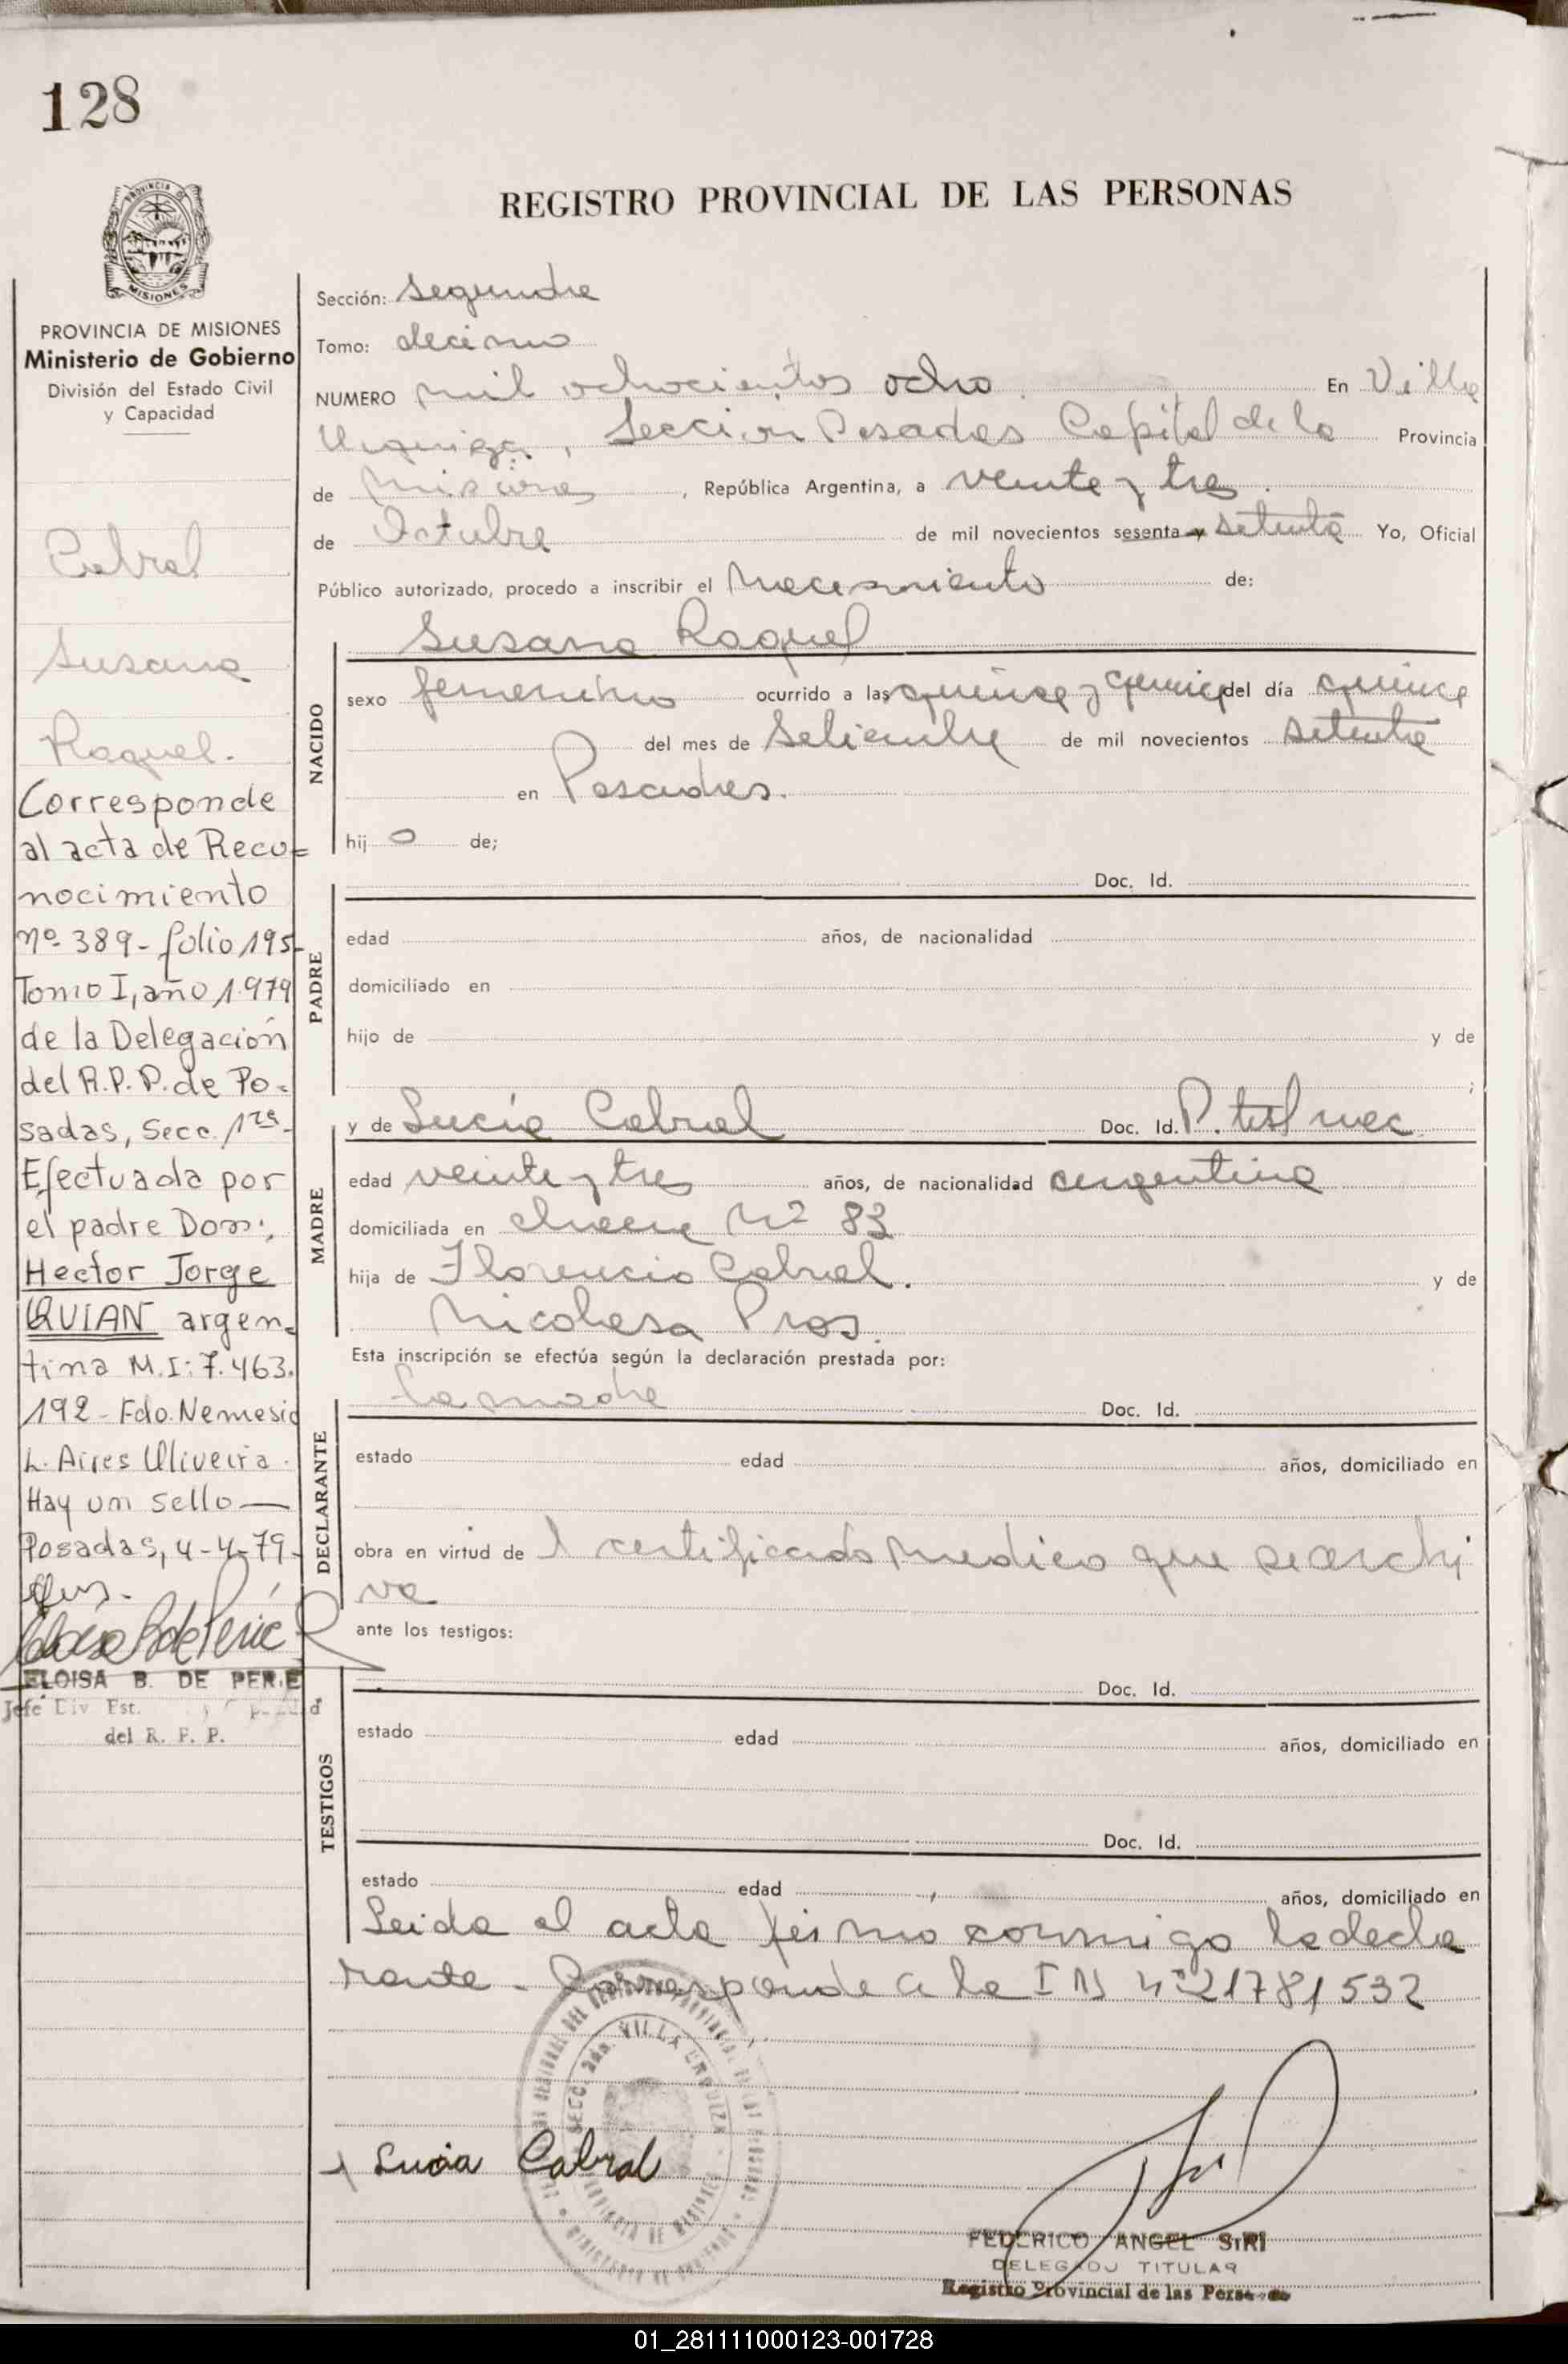 128
REGISTRO PROVINCIAL DE LAS PERSONAS
PROVINCIA DE MISIONES
MISIONES
PROVINCIA DE MISIONES
Ministerio de Gobierno
División del Estado Civil
y Capacidad
Cabral
Susana
Raquel.
Corresponde
al acta de Reco=
nocimiento
nº 389- folio 195-
Tomo I, año 1.979
de la Delegación
del R.P.P. de Po=
sadas, Secc. 1ra-
Efectuada por
el padre Don:,
Hector Jorge
QUIAN argen-
tina M.I: 7.463.
192- Fdo. Nemesio
L. Aires Oliveira.
Hay un sello—
Posadas, 4-4-79-
ELOISA B. DE PERIE
Jefe Div Est.
del R. P. P.
Sección: segunda
Tomo: decimo
NUMERO mil ochocientos ocho En Villa
Urquiza, Seccion Posadas Capital de la Provincia
de Misiones, República Argentina, a veinte y tres
de Octubre de mil novecientos sesenta y setenta Yo, Oficial
Público autorizado, procedo a inscribir el nacimiento de:
NACIDO
Susana Raquel
sexo femenino ocurrido a las quince y quince del día quince
del mes de Setiembre de mil novecientos setenta
en Posadas.
hij o de;
PADRE
Doc. Id.
edad años, de nacionalidad
domiciliado en
hijo de y de
;
MADRE
y de Lucía Cabral Doc. Id. P.
edad veinte y tres años, de nacionalidad argentina
domiciliada en chacra Nº 83
hija de Florencio Cabral. y de
Nicolasa
Esta inscripción se efectúa según la declaración prestada por:
DECLARANTE
la madre Doc. Id.
estado edad años, domiciliado en
obra en virtud de l certificado medico que se archi
va
ante los testigos:
TESTIGOS
Doc. Id.
estado edad años, domiciliado en
Doc. Id.
estado edad años, domiciliado en
Leida el acta firmó conmigo la decla
rante. Corresponde a la I N Nº 21781532
SECC. 2da. VILLA URQUIZA
PROVINCIA DE MISIONES
Lucia Cabral
FEDERICO ANGEL SIRI
DELEGADO TITULAR
Registro Provincial de las Personas
01_281111000123-001728